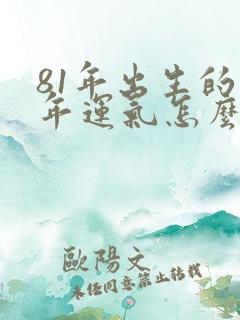 81年出生的
年運氣怎麼
歐陽文
未任同意禁止轉載